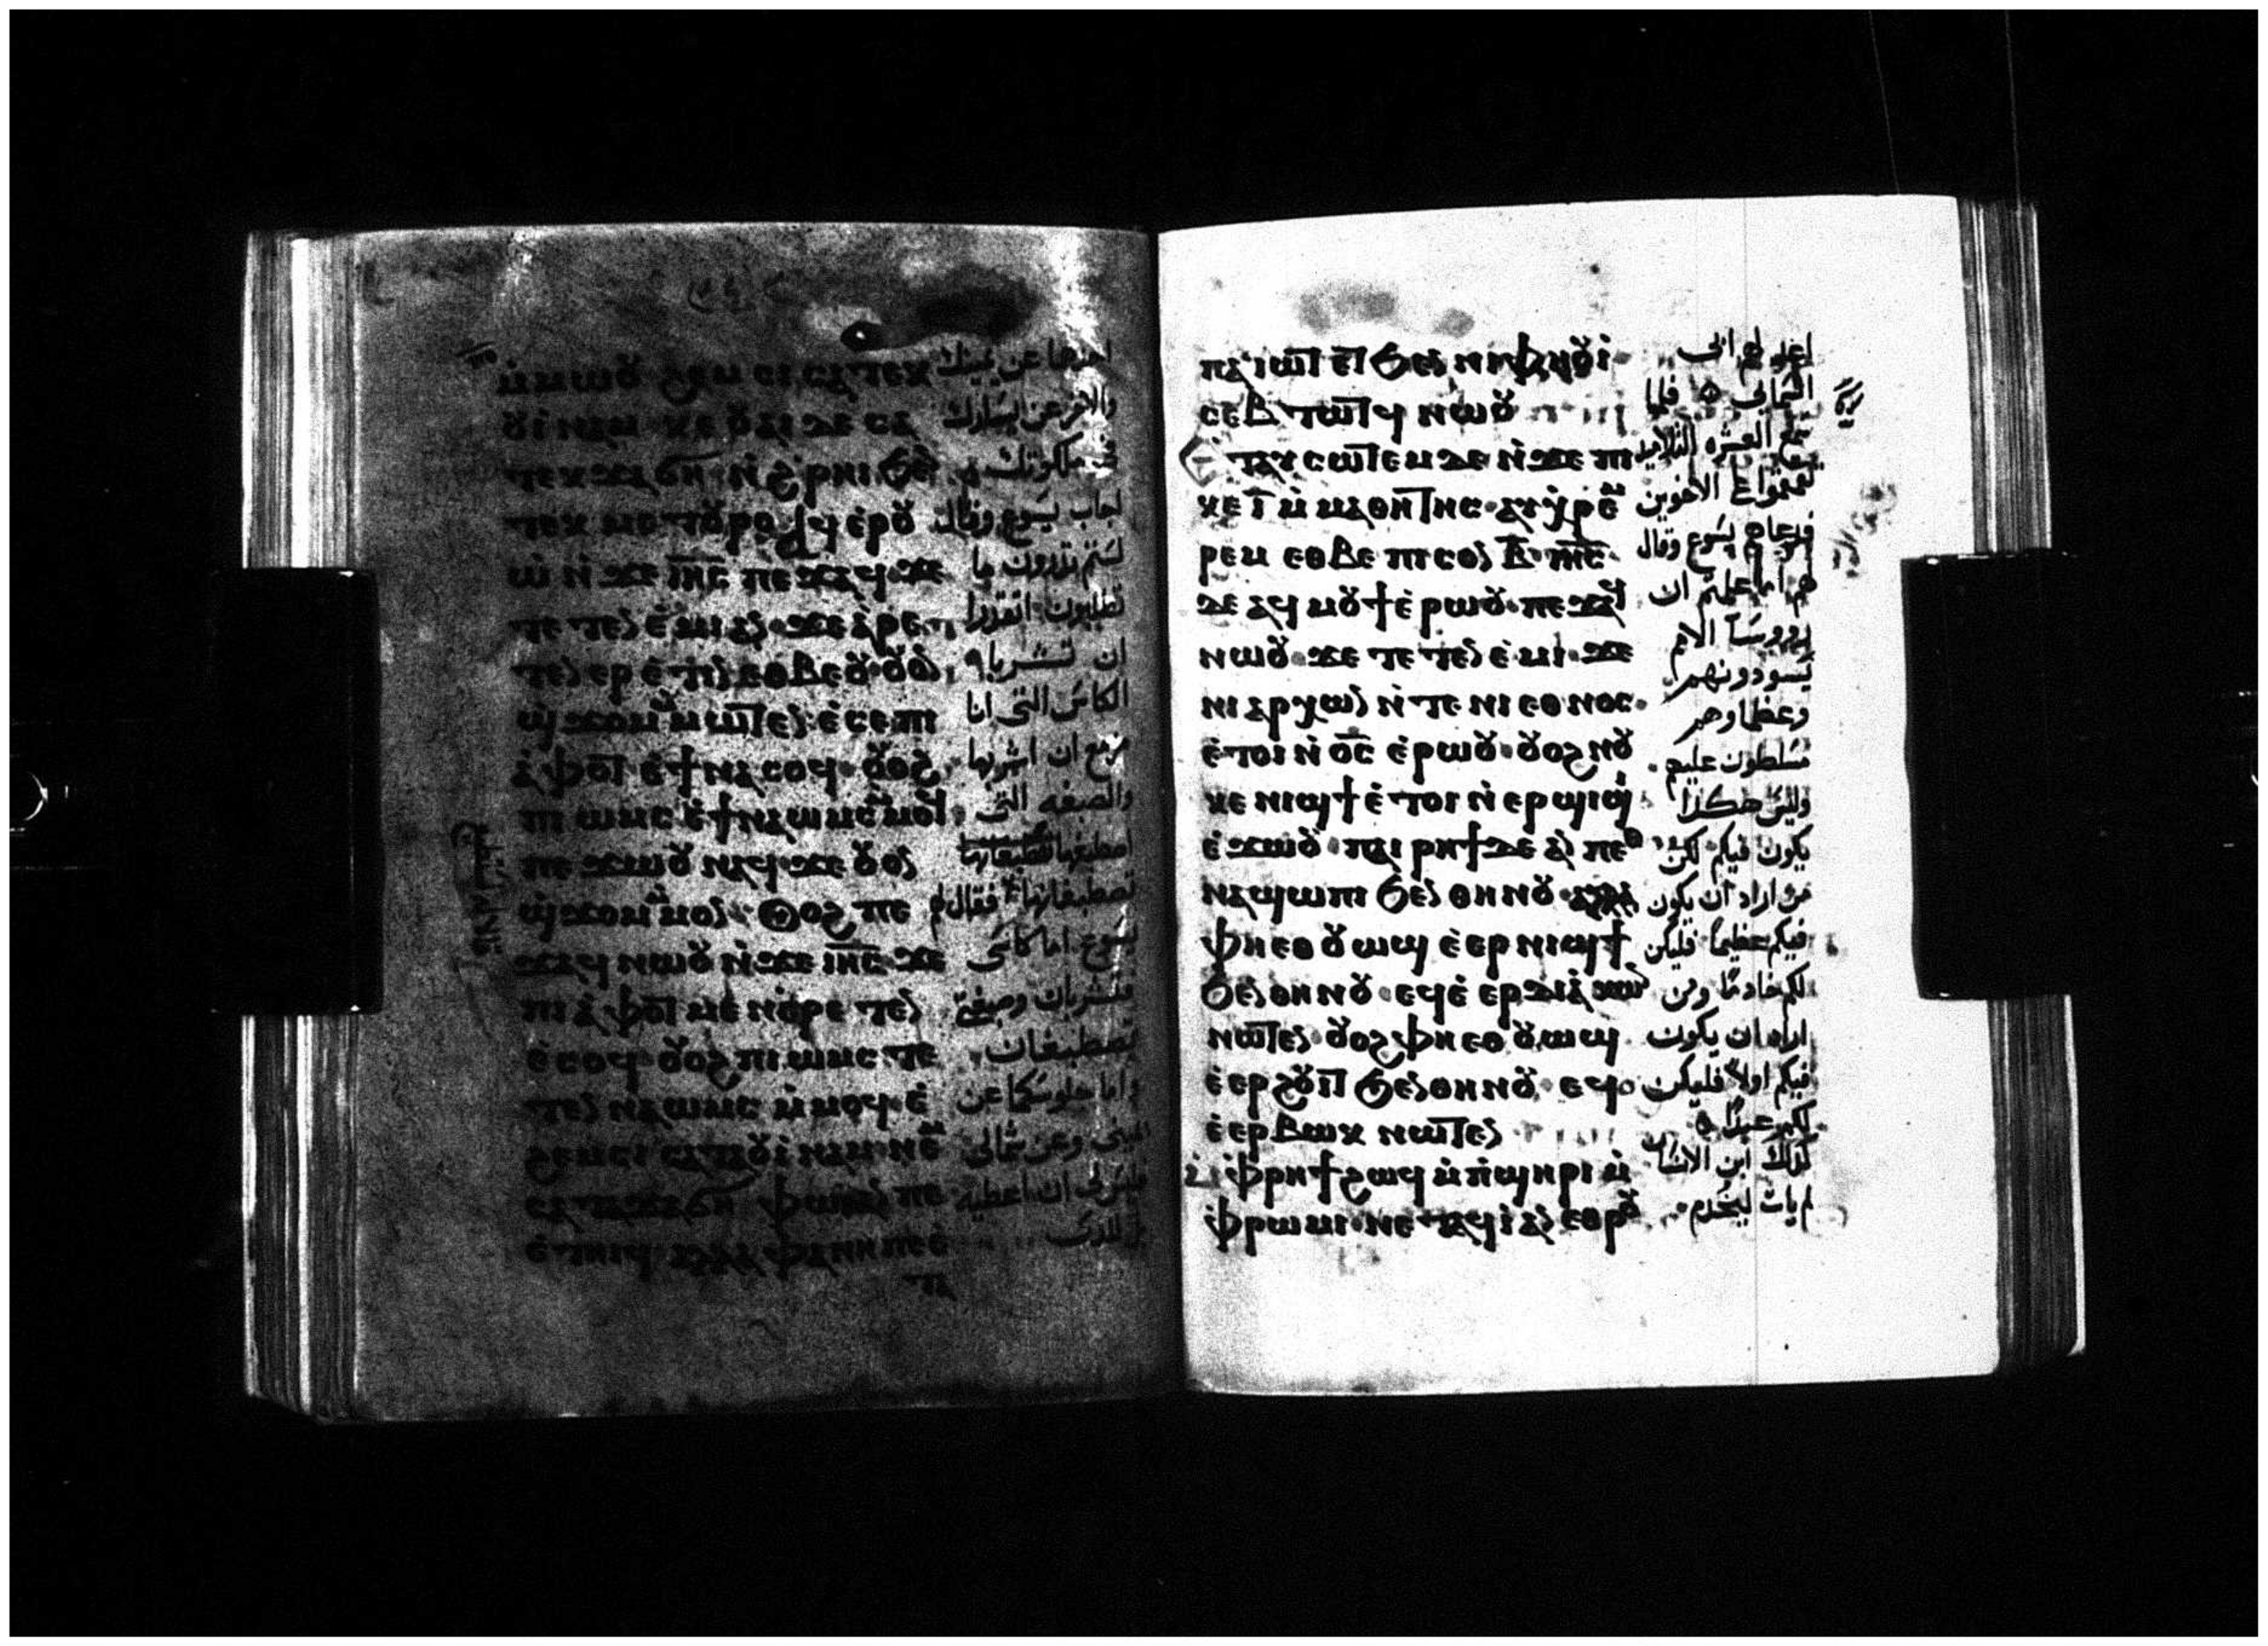 ⲙ̀ⲙⲱⲟⲩ ϩⲉⲙⲥⲓ ⲥⲁⲧⲉⲕ
ⲟⲩⲓⲛⲁⲙ ⲕⲉⲟⲩⲁⲓ ⲇⲉ ⲥⲁ
ⲧⲉⲕϫⲁϭⲏ ⲛ̀ϩ̀ⲣⲏⲓ ϧⲉⲛ
ⲧⲉⲕⲙⲉⲧⲟⲩⲣⲟ ⲁϥⲉⲣⲟⲩ
ⲱ ⲛ̀ϫⲉ ⲓⲏⲥ ⲡⲉϫⲁϥ ϫⲉ
ⲧⲉⲧⲉⲛⲉ̀ⲙⲓ ⲁⲛ ϫⲉ ⲁ̀ⲣⲉ
ⲧⲉⲛⲉⲣⲉ̀ⲧⲓⲛ ⲉⲑⲃⲉⲟⲩ ⲟⲩⲟⲛ
ϣ̀ϫⲟⲙ ⲙ̀ⲙⲱⲧⲉⲛ ⲉ̀ⲥⲉⲡⲓ
ⲁ̀ⲫⲟⲧ ⲉ̀ϯⲛⲁⲥⲟϥ ⲟⲩⲟϩ
ⲡⲓⲱⲙⲥ ⲉ̀ϯⲛⲁⲱⲙⲥ
ⲡⲉϫⲱⲟⲩ ⲛⲁϥ ϫⲉ ⲟⲩⲟⲛ
ϣ̀ϫⲟⲙ ⲙ̀ⲙⲟⲛ ⲟⲩⲟϩ ⲡⲉ
ϫⲁϥ ⲛⲱⲟⲩ ⲛ̀ϫⲉ ⲓⲏⲥ ϫⲉ
ⲡⲓⲁ̀ⲫⲟⲧ ⲙⲉⲛ ⲁⲣⲉⲧⲉⲛ
ⲉ̀ⲥⲟϥ ⲟⲩⲟϩ ⲡⲓⲱⲙⲥ ⲧⲉ
ⲧⲉⲛⲛⲁⲱⲙⲥ ⲙ̀ⲙⲟϥ ⲉ̀
ϩⲉⲙⲥⲓ ⲥⲁⲧⲁⲟⲩⲓⲛⲁⲙ ⲛⲉⲙ
ⲥⲁⲧⲁϫⲁϭⲏ ⲫⲱⲓ ⲁⲛ ⲡⲉ
ⲉ̀ⲧⲏⲓϥ ⲁⲗⲗⲁ ⲫⲁⲛⲏ ⲡⲉ ⲉ̀
ⲧⲁ
احدهما عن يمينك
والاخر عن يسارك
في ملكوتك
اجاب يسوع وقال
لستم تدرون ما
تطلبون اتقدرا
ان تشربا
الكاس التي انا
مزمع ان اشربها
والصبغه التي
اصطبغها
تصطبغانها فقال
يسوع اما كاسي
فتشربان وصبغتي
تصطبغان
واما جلوسكما عن
يميني وعن شمالي
فليس لي ان اعطيه
ⲡⲁⲓⲱⲧ ⲉⲧϧⲉⲛ ⲛⲓⲫⲏⲟⲩⲓ
ⲥⲉⲃⲧⲱⲧϥ ⲛⲱⲟⲩ
ⲉⲧⲁⲩⲥⲱⲧⲉⲙ ⲇⲉ ⲛ̀ϫⲉ ⲡⲓ
ⲕⲉ ⲓ̅ ⲙ̀ⲙⲁⲑⲏⲧⲏⲥ ⲁⲩⲭ̀ⲣⲉⲙ
ⲣⲉⲙ ⲉⲑⲃⲉ ⲡⲓⲥⲟⲛ ⲃ̅ ⲓⲏⲥ
ⲇⲉ ⲁϥⲙⲟⲩϯ ⲉ̀ⲣⲱⲟⲩ ⲡⲉϫⲁϥ
ⲛⲱⲟⲩ ϫⲉ ⲧⲉⲧⲉⲛⲉ̀ⲙⲓ ϫⲉ
ⲛⲓⲁⲣⲭⲱⲛ ⲛ̀ⲧⲉ ⲛⲓⲉⲑⲛⲟⲥ
ⲉ̀ⲧⲟⲓ ⲛ̀ⲟ̅ⲥ̅ ⲉ̀ⲣⲱⲟⲩ ⲟⲩⲟϩ ⲛⲟⲩ
ⲕⲉⲛⲓϣϯ ⲉ̀ⲧⲟⲓ ⲛ̀ⲉⲣϣⲓϣⲓ
ⲉ̀ϫⲱⲟⲩ ⲡⲁⲓⲣⲏϯ ⲇⲉ ⲁⲛ ⲡⲉⲑ
ⲛⲁϣⲱⲡⲓ ϧⲉⲛ ⲑⲏⲛⲟⲩ ⲁⲗⲗⲁ
ⲫⲏⲉⲑⲟⲩⲱϣ ⲉ̀ⲉⲣⲛⲓϣϯ
ϧⲉⲛ ⲑⲏⲛⲟⲩ ⲉϥⲉ̀ⲉⲣⲇⲓⲁⲕⲱⲛ
ⲛⲱⲧⲉⲛ ⲟⲩⲟϩ ⲫⲏⲉⲑⲟⲩⲱϣ
ⲉ̀ⲉⲣϩⲟⲩⲓⲧ ϧⲉⲛ ⲑⲏⲛⲟⲩ ⲉϥ
ⲉ̀ⲉⲣⲃⲱⲕ ⲛⲱⲧⲉⲛ
ⲙ̀ⲫ̀ⲣⲏϯ ϩⲱϥ ⲙ̀ⲡ̀ϣⲏⲣⲓ ⲙ̀
ⲫ̀ⲣⲱⲙⲓ ⲛⲉⲧⲁϥⲓ̀ ⲁⲛ ⲉⲑⲣⲟⲩ
فلما
سمع العشره التلاميذ
الاخوين
فدعاهم يسوع وقال
لهم اما علمتم ان
رووسا الامم
يسودونهم
وعظماوهم
مسلطون عليهم
وليس هكذا
يكون فيكم لكن
من اراد ان يكون
فيكم عظيما فليكن
لكم خادما ومن
اراد ان يكون
فيكم اولا فليكن
لكم عبدا
كذلك ابن الانسان
لم يات ليخدم